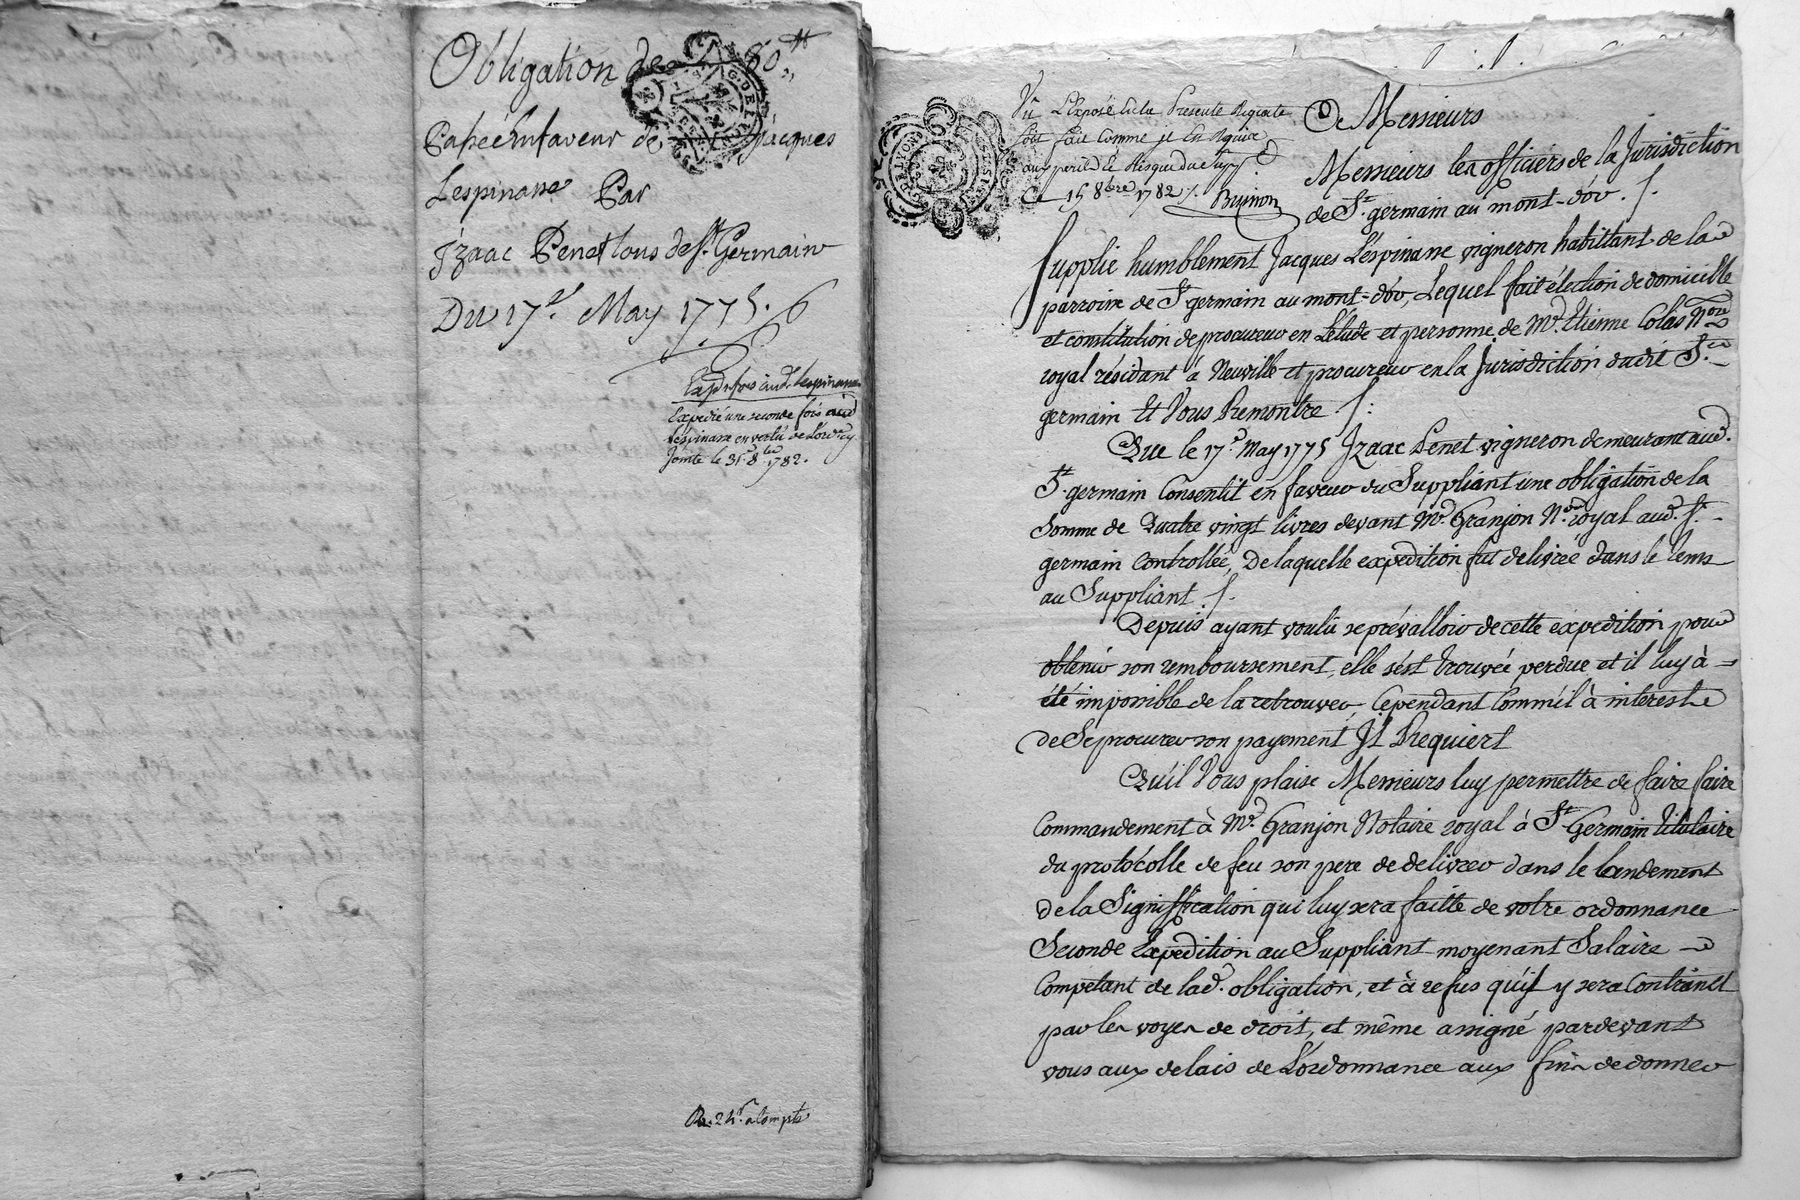 Obligation de 80 ₶
Passée En faveur de Jacques
Lespinasse Par
Izaac Penet tous de St. Germain
Du 17e. May 1775.
Expédié une seconde fois aud
Lespinasse en vertu de L'ord cy
Jointe le 31e. 8bre 1782.
24s. a Compte
Vû L'Exposé En la Presente Requete
soit fait Comme je En Requise
aux peril Et Risque du supp
Ce 15 8bre 1782 /.
A Messieurs
Messieurs les officiers de la Jurisdiction
de St. germain au mont-d'ôr. /.
Supplie humblement Jacques Lespinasse vigneron habittant de la
parroisse de St germain au mont-d'ôr, Lequel fait élection de domicille
et constitution de procureur en L'étude et personne de Me. Etienne Colas Nore
royal résidant à Neuville et procureur en la Jurisdiction dudit St.
germain Et Vous Remontre /:
Que le 17e. May 1775 Izaac Penet vigneron demeurant aud.
St. germain Consentit en faveur du Suppliant une obligation de la
Somme de Quatre vingt livres devant Me. Granjon Nre. royal aud. St.
germain Controllée, De laquelle expedition fut delivrée dans le tems
au Suppliant. /.
Depuis ayant voulû se prévalloir de cette expedition pour
obtenir son remboursement, elle s'est trouvée perdue et il luy à
été impossible de la retrouver, Cependant Comm'il à interest
de Se procurer son payement Il Requiert
Qu'il Vous plaise Messieurs luy permettre de faire faire
Commandement à Me. Granjon Notaire royal à St. Germain titulaire
du protocolle de feu son pere de delivrer dans le landement
de la Signiffication qui luy sera faitte de votre ordonnance
Seconde Expedition au Suppliant moyenant Salaire
Competant de lad. obligation, et à refus qu'il y sera Contraint
par les voyes de droit, et même assigné pardevant
vous aux delais de L'ordonnance aux fins de donner